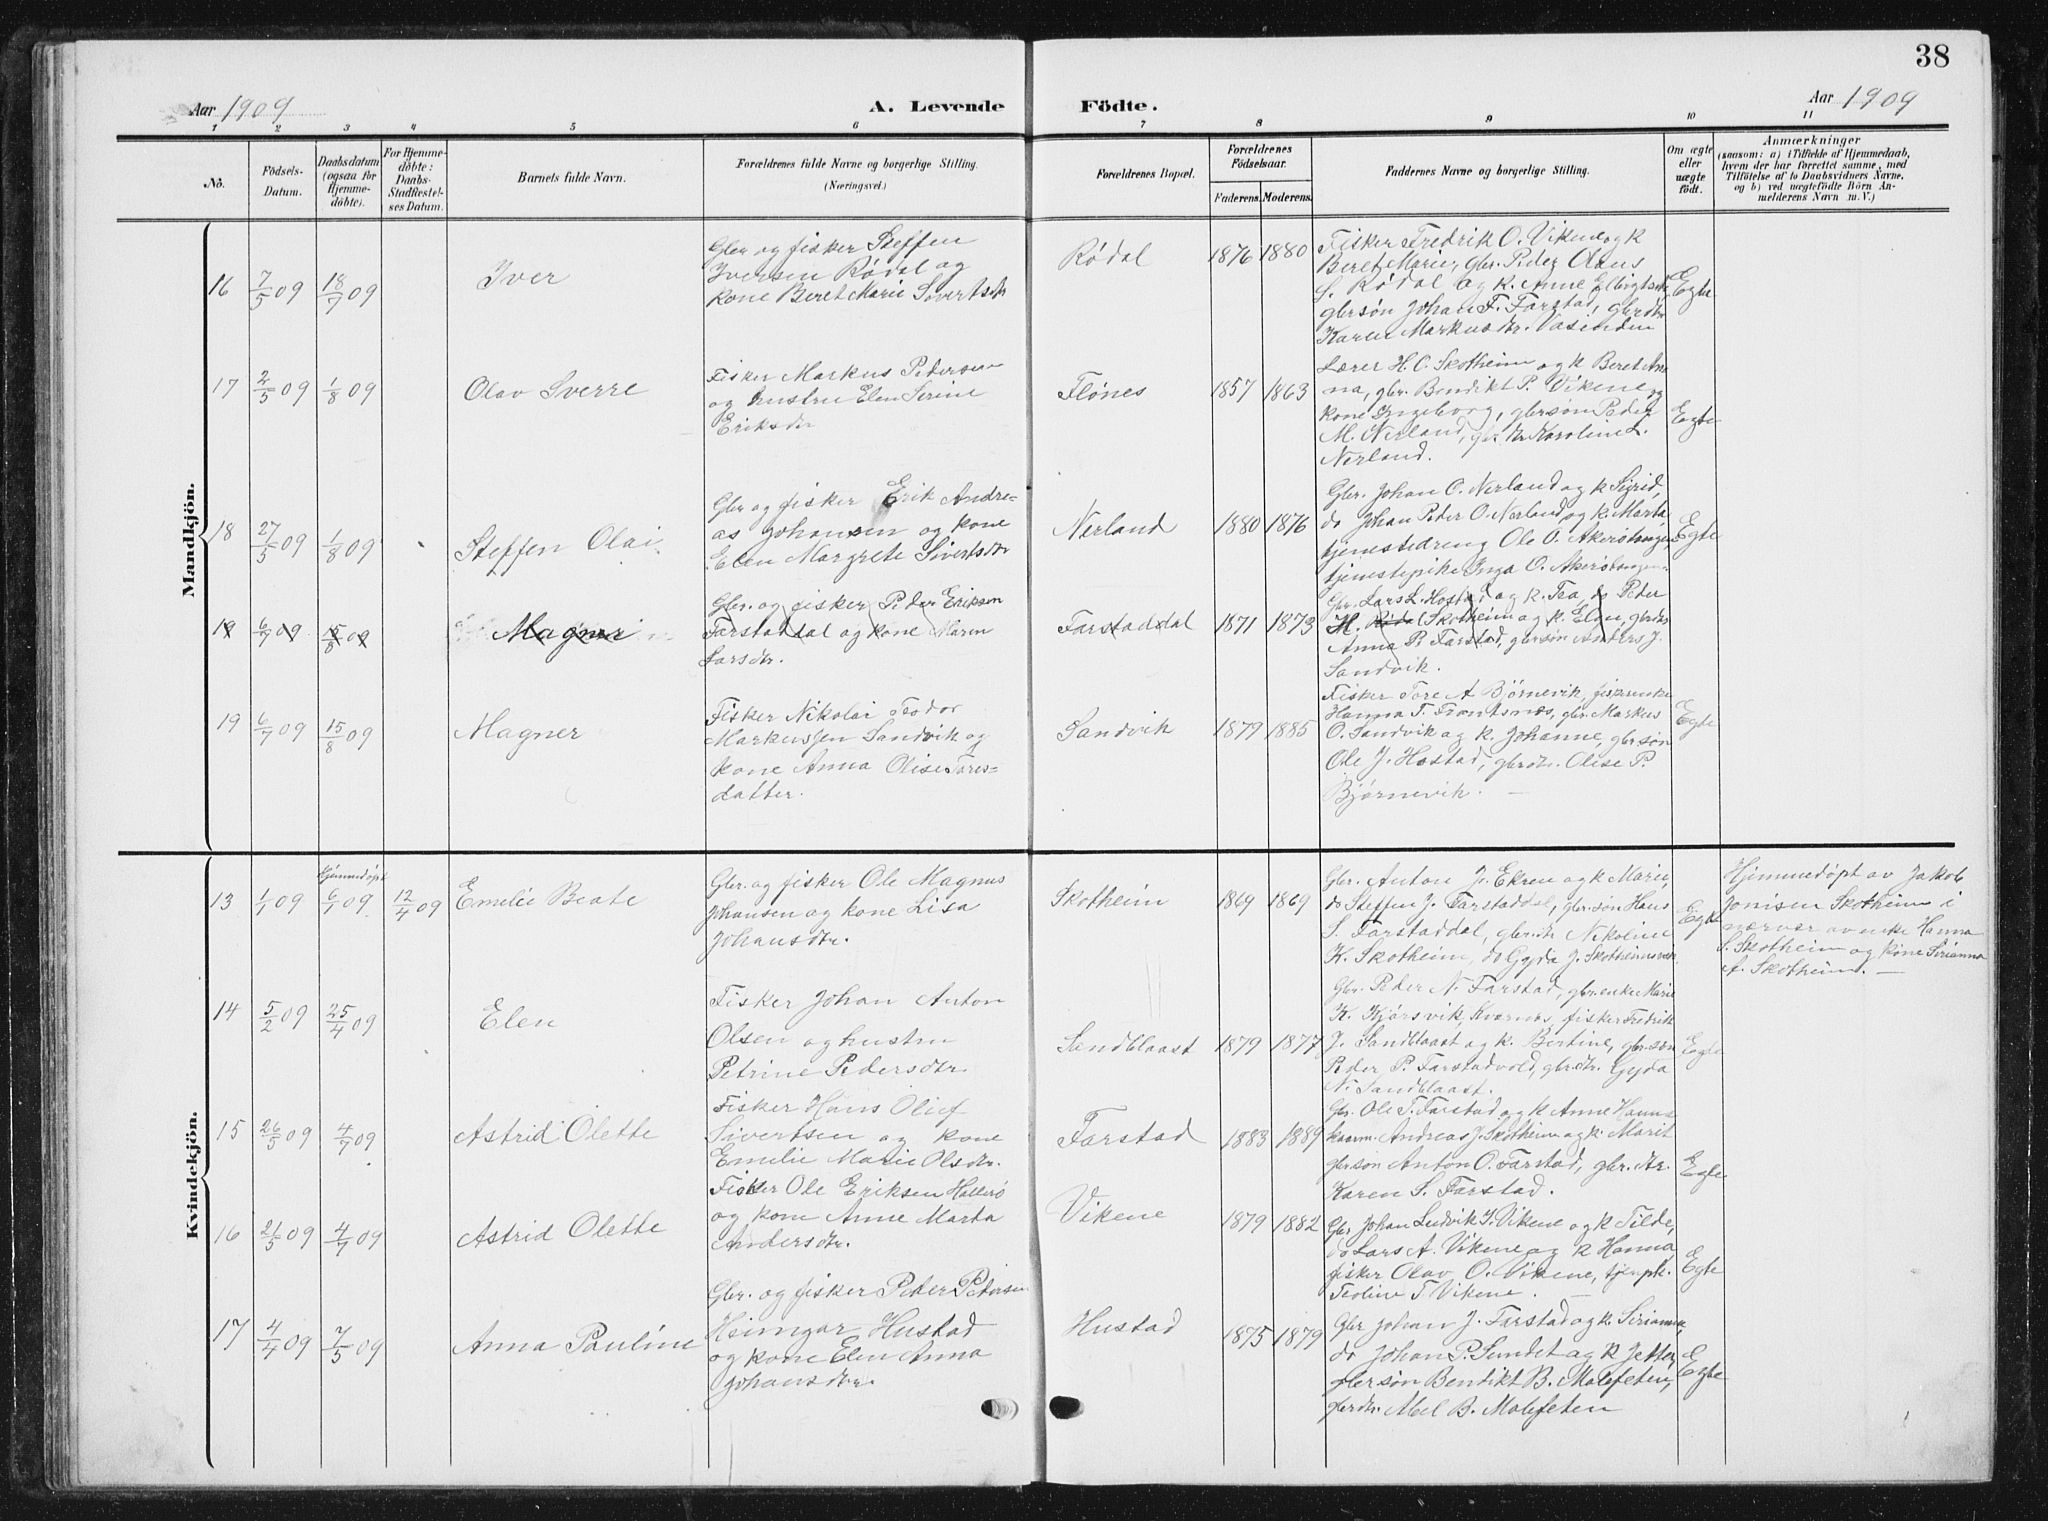 38
Aar 1909
A. Levende
Födte.
Aar 1909
1 2 3 4 5 6 7 8 9 10 11
No.
Födsels-
Datum.
Daabsdatum
(ogsaa for
Hjemme-
döbte).
For Hjemme-
döbte:
Daabs-
Stadfæstel-
ses Datum.
Barnets fulde Navn.
Forældrenes fulde Navne og borgerlige Stilling.
(Næringsvei.)
Forældrenes Bopæl.
Forældrenes
Födselsaar.
Faderens.
Moderens.
Faddernes Navne og borgerlige Stilling.
Om ægte
eller
uægte
födt.
Anmærkninger
(saasom: a) i Tilfælde af Hjemmedaab,
hvem der har forrettet samme, med
Tilföielse af to Daabsvidners Navne,
og b) ved uægtefödte Börn An-
melderens Navn m. V.)
Mandkjön.
16
7/5 09
18/7 09
Iver
Gbr og fisker Steffen
Iversen Rødal og
kone Beret Marie Sivertsdtr
Rødal
1876
1880
Fisker Fredrik O. Vikene og k
Beret Marie, gbr. Peder Olaus
S. Rødal og k. Anne
gbrsøn Johan F. Farstad, gbrdtr
Karen Markusdtr. Vasinden
Egte
17
2/5 09
1/8 09
Olav Sverre
Fisker Markus Pedersen
og hustru Elen Serine
Eriksdtr
Flønes
1857
1863
Lærer H. C. Skotheim og k Beret An
na, gbr. Bendikt P. Vikene og
kone Ingeborg, gbrsøn Peder
M. Nerland, gbr. dtr Karoline L.
Nerland.
Egte
18
27/5 09
1/8 09
Steffen Olai
Gbr og fisker Erik Andre-
as Johansen og kone
Elen Margrete Sivertsdtr
Nerland
1880
1876
Gbr. Johan O. Nerland og k Sigrid,
do Johan Peder O. Nerland og k. Marta,
tjenestedreng Ole O.
tjenestepike Inga O.
Egte
19
6/7 09
15/8 09
Magner
Gbr. og fisker Peder Eriksen
Farstaddal og kone Maren
Larsdtr.
Farstaddal
1871
1873
Gbr. Lars L. Hostad og k. Tea, do Peder
M. Rødal Skotheim og k. Elen, gbrdtr
Anna P. Farstad, gbrsøn Anders J.
Sandvik.
19
6/7 09
15/8 09
Magner
Fisker Nikolai Teodor
Markussen Sandvik og
kone Anna Olise Tores-
datter.
Sandvik
1879
1885
Fisker Tore A Bjørnevik, fiskerenke
Hanna T. gbr. Markus
O. Sandvik og k. Johanne, gbrsøn
Ole J. Hostad, gbrdtr. Olise P.
Bjørnevik.
Egte
Kvindekjön.
13
1/1 09
Hjemmedøpt
6/1 09
12/4 09
Emelie Beate
Gbr. og fisker Ole Magnus
Johansen og kone Lisa
Johansdtr.
Skotheim
1869
1869
Gbr. Anton J. Ekren og k Marie,
do Steffen J. Farstaddal, gbr. søn Hans
S. Farstaddal, gbr. dtr Nikoline
K. Skotheim, do Gyda J. Skotheimsvik.
Egte
Hjemmedøpt av Jakob
Jonisen Skotheim i
nærvær av enke Hanna
S. Skotheim og kone Sirianna
A. Skotheim. —
14
5/2 09
25/4 09
Elen
Fisker Johan Anton
Olsen og hustru
Petrine Pedersdtr.
Sandblaast
1879
1877
Gbr. Peder N. Farstad, gbr. enke Marie
K. Kjørsvik, Kvernes, fisker Fredrik
J. Sandblaast og k. Bertine, gbr. søn
Peder P. Farstadvold, gbr. dtr. Gyda
N. Sandblaast.
Egte
15
26/5 09
4/7 09
Astrid Olette
Fisker Hans Oluf
Sivertsen og kone
Emelie Marie Olsdtr.
Farstad
1883
1889
Gbr. Ole T. Farstad og k Anne
Andreas J. Skotheim og k. Marit
gbrsøn Anton O. Farstad, gbr. dtr.
Karen S. Farstad.
Egte
16
21/5 09
4/7 09
Astrid Olette
Fisker Ole Eriksen Hallerø
og kone Anne Marta
Andersdtr.
Vikene
1879
1882
Gbr Johan Ludvik J. Vikene og k Tilde,
do Lars A. Vikene og k Hanna,
fisker Olav O. Vikene, tjen. pk.
Teoline T Vikene.
Egte
17
4/4 09
7/5 09
Anna Pauline
Gbr. og fisker Peder Petersen
Heimgar Hustad
og kone Elen Anna
Johansdtr.
Hustad
1875
1879
Gbr Johan J. Farstad og k. Sirianna,
do Johan P. Sundet og k Jette,
gbrsøn Bendikt B. Malefeten,
gbrdtr. Abel B. Malefeten
Egte